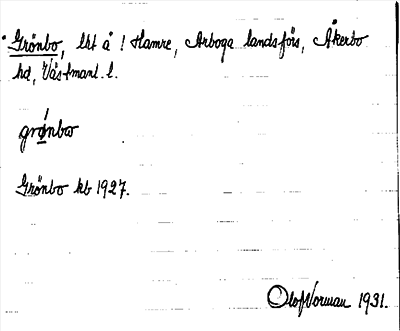 Grönbo, lht å 1 Hamre, Arboga landsförs, Åkerbo
hd, Västmanl. l.
grønbω
Grönbo kb 1927.
Olof Vorman 1931.